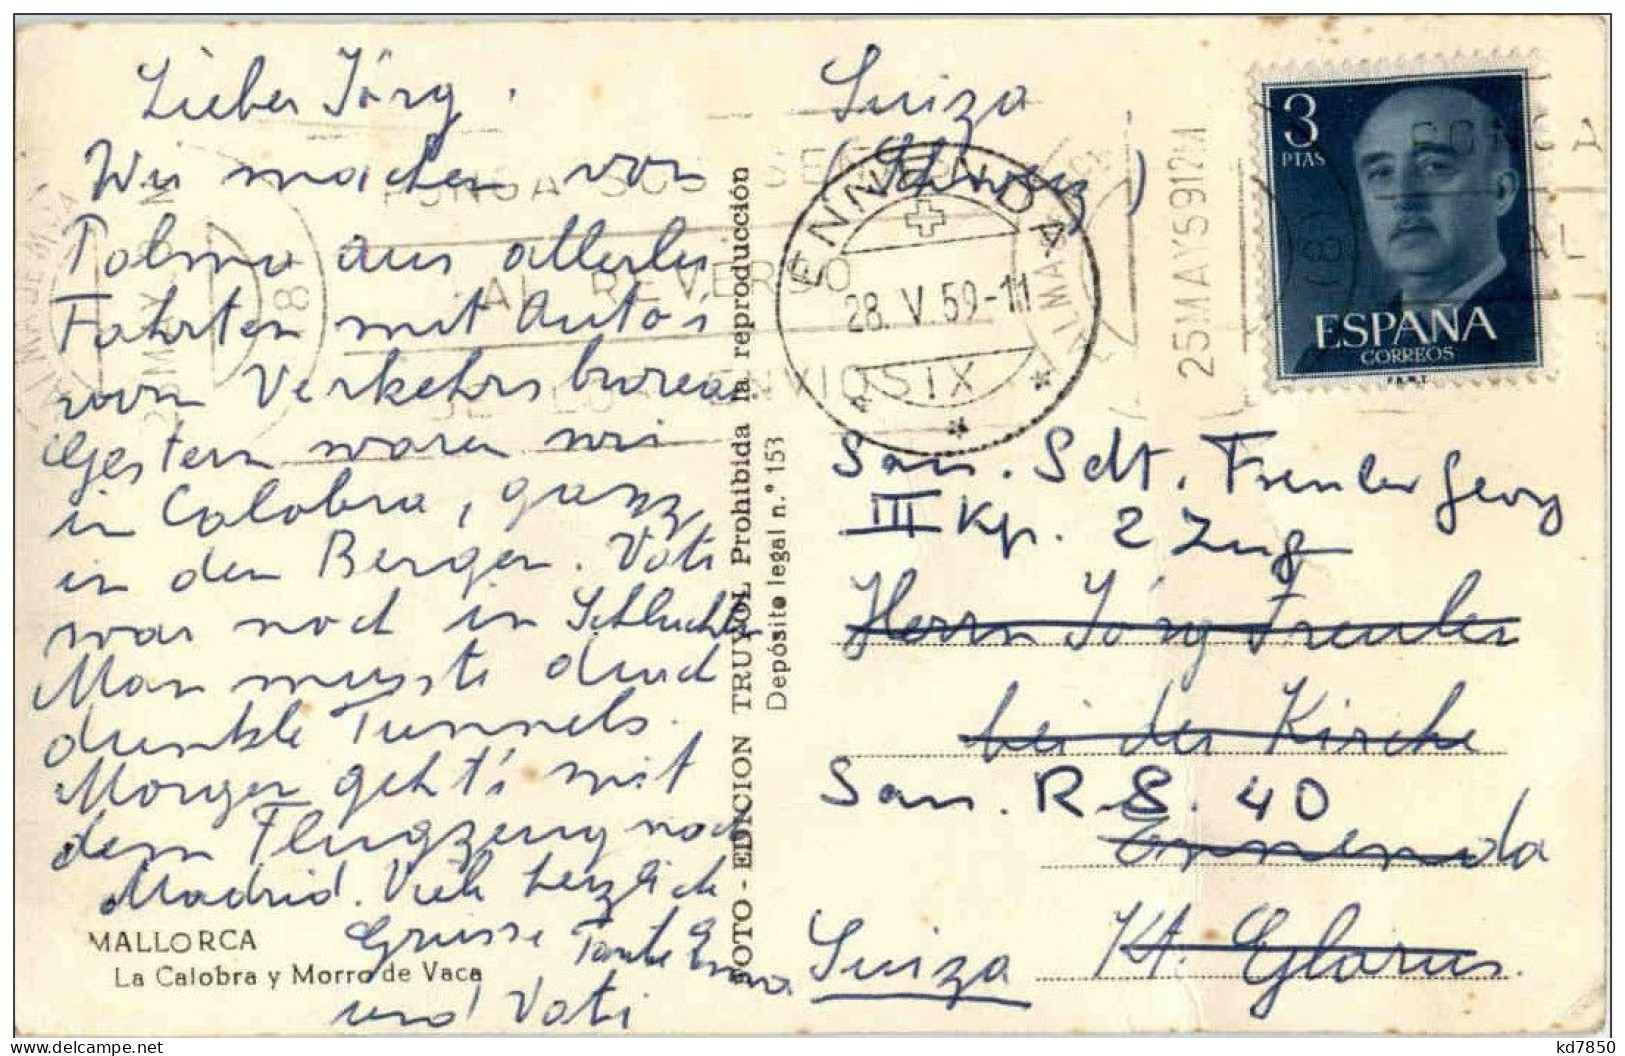 Lieber Jörg.
Wir machen von
Palma aus allerlei
Fahrten mit Auto's
vom Verkehrsbureau
Gestern waren wir
in Calobra, ganz
in den Bergen. Vati
war noch in Schluchten
Man musste durch
dunkle Tunnels.
Morgen geht's mit
dem Flugzeug nach
Madrid. Viele herzlich
Grüsse Tante Emma
und Vati
MALLORCA
La Calobra y Morro de Vaca
FOTO - EDICION TRUYOL Prohibida la reproducción
Depósito legal n.° 153
Suiza
(Schweiz)
ENNENDA
28. V. 59-11
SIX
AL REVERSO
25 MAY 59 12 M
3
PTAS
ESPAÑA
CORREOS
F.N.M.T.
San. Sdt. Freuler Georg
III Kp. 2 Zug
Herrn Jörg Freuler
bei der Kirche
San. R.S. 40
Ennenda
Suiza Kt. Glarus.
kd7850